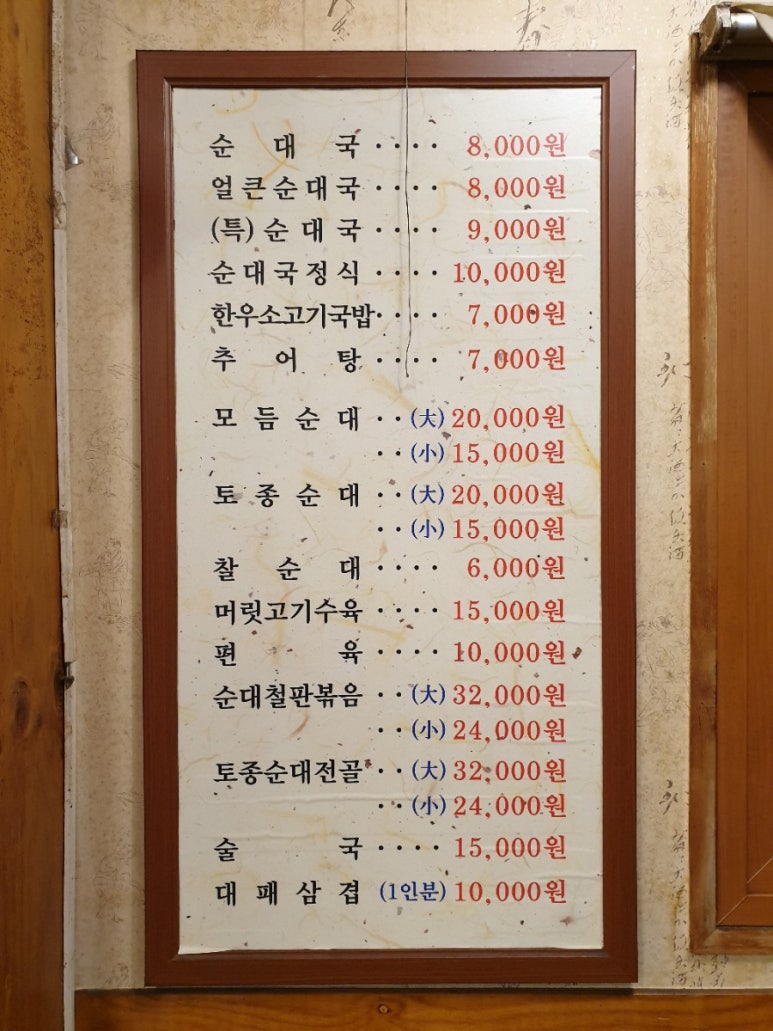 순 대 국 ···· 8,000원
얼큰순대국 ···· 8,000원
(특)순대국 ···· 9,000원
순대국정식 ···· 10,000원
한우소고기국밥···· 7,000원
추 어 탕 ···· 7,000원
모 듬 순 대 ··(大) 20,000원
··(小) 15,000원
토 종 순 대 ··(大) 20,000원
··(小) 15,000원
찰 순 대 ···· 6,000원
머릿고기수육 ···· 15,000원
편 육 ···· 10,000원
순대철판볶음 ··(大) 32,000원
··(小) 24,000원
토종순대전골 ··(大) 32,000원
··(小) 24,000원
술 국 ···· 15,000원
대 패 삼 겹 (1인분) 10,000원